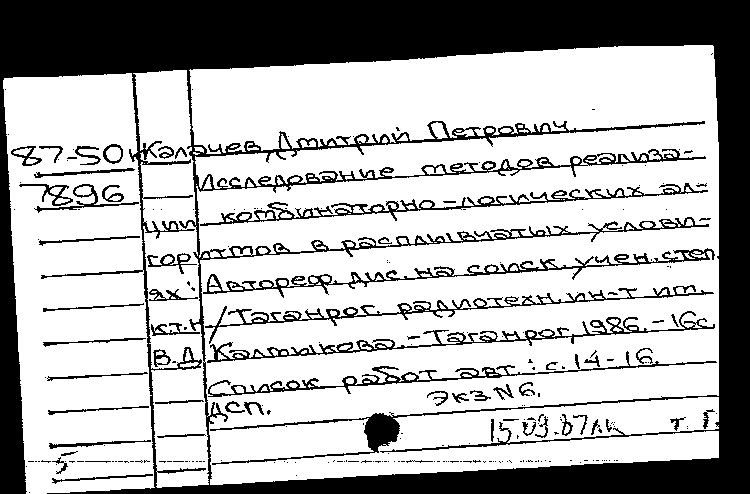 87-50к Калачев, Дмитрий Петрович.
7896 Исследование методов реализа-
ции комбинаторно-логических ал-
горитмов в расплывчатых услови-
ях: Автореф. дис. на соиск. учен. степ.
к.т.н. /Таганрог. радиотехн. ин-т им.
В.Д. Калмыкова. - Таганрог, 1986. - 16с.
Список работ авт.: с. 14-16.
ДСП. Экз N6.
15.09.87 лк т. Г.
5